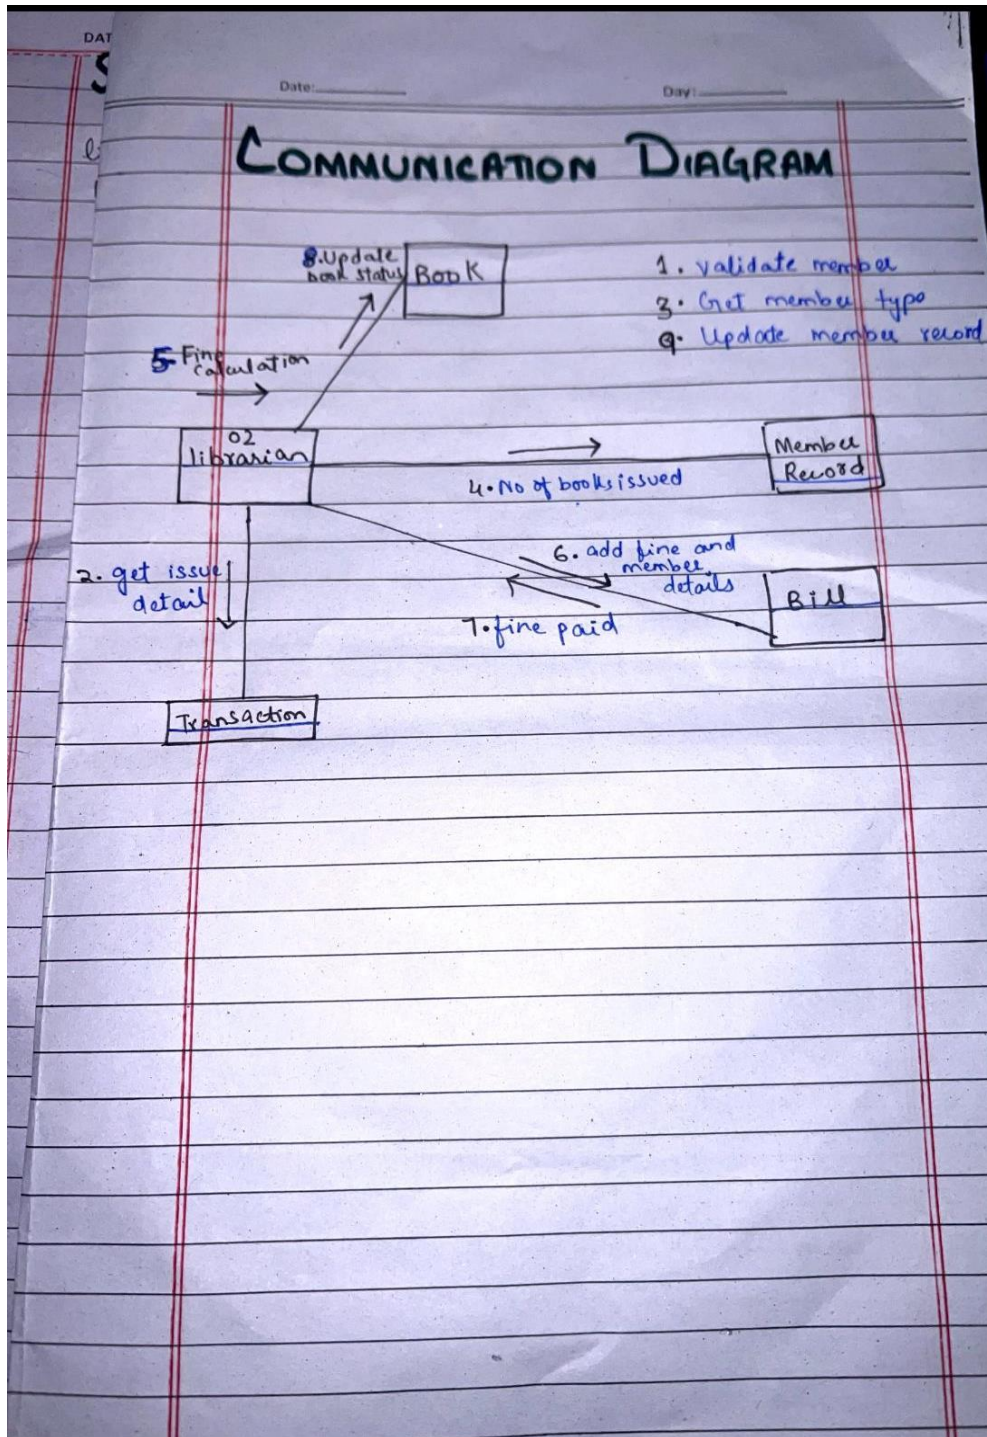 DAT
Date:
Day:
COMMUNICATION DIAGRAM
8.Update
book status
Book
1. validate member
3. Get member type
9. Update member record
5- Fine
calculation
02
librarian
Member
Record
4. No of books issued
6. add fine and
member
details
2. get issue
detail
Bill
7. fine paid
Transaction